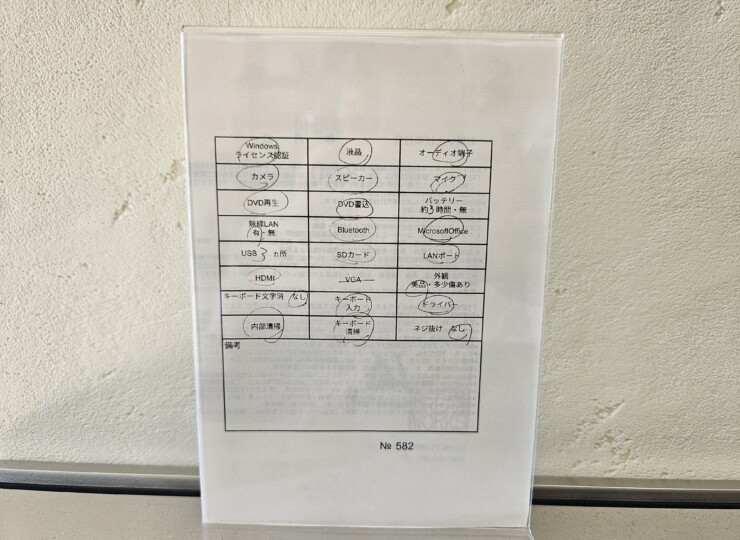 Windows
ライセンス認証
液晶
オーディオ端子
カメラ
スピーカー
マイク
DVD再生
DVD書込
バッテリー
約3時間・無
無線LAN
有・無
Bluetooth
MicrosoftOffice
USB 3 ヵ所
SDカード
LANポート
HDMI
VGA
外観
美品・多少傷あり
キーボード文字消 なし
キーボード
入力
ドライバー
内部清掃
キーボード
清掃
ネジ抜け なし
備考
№ 582